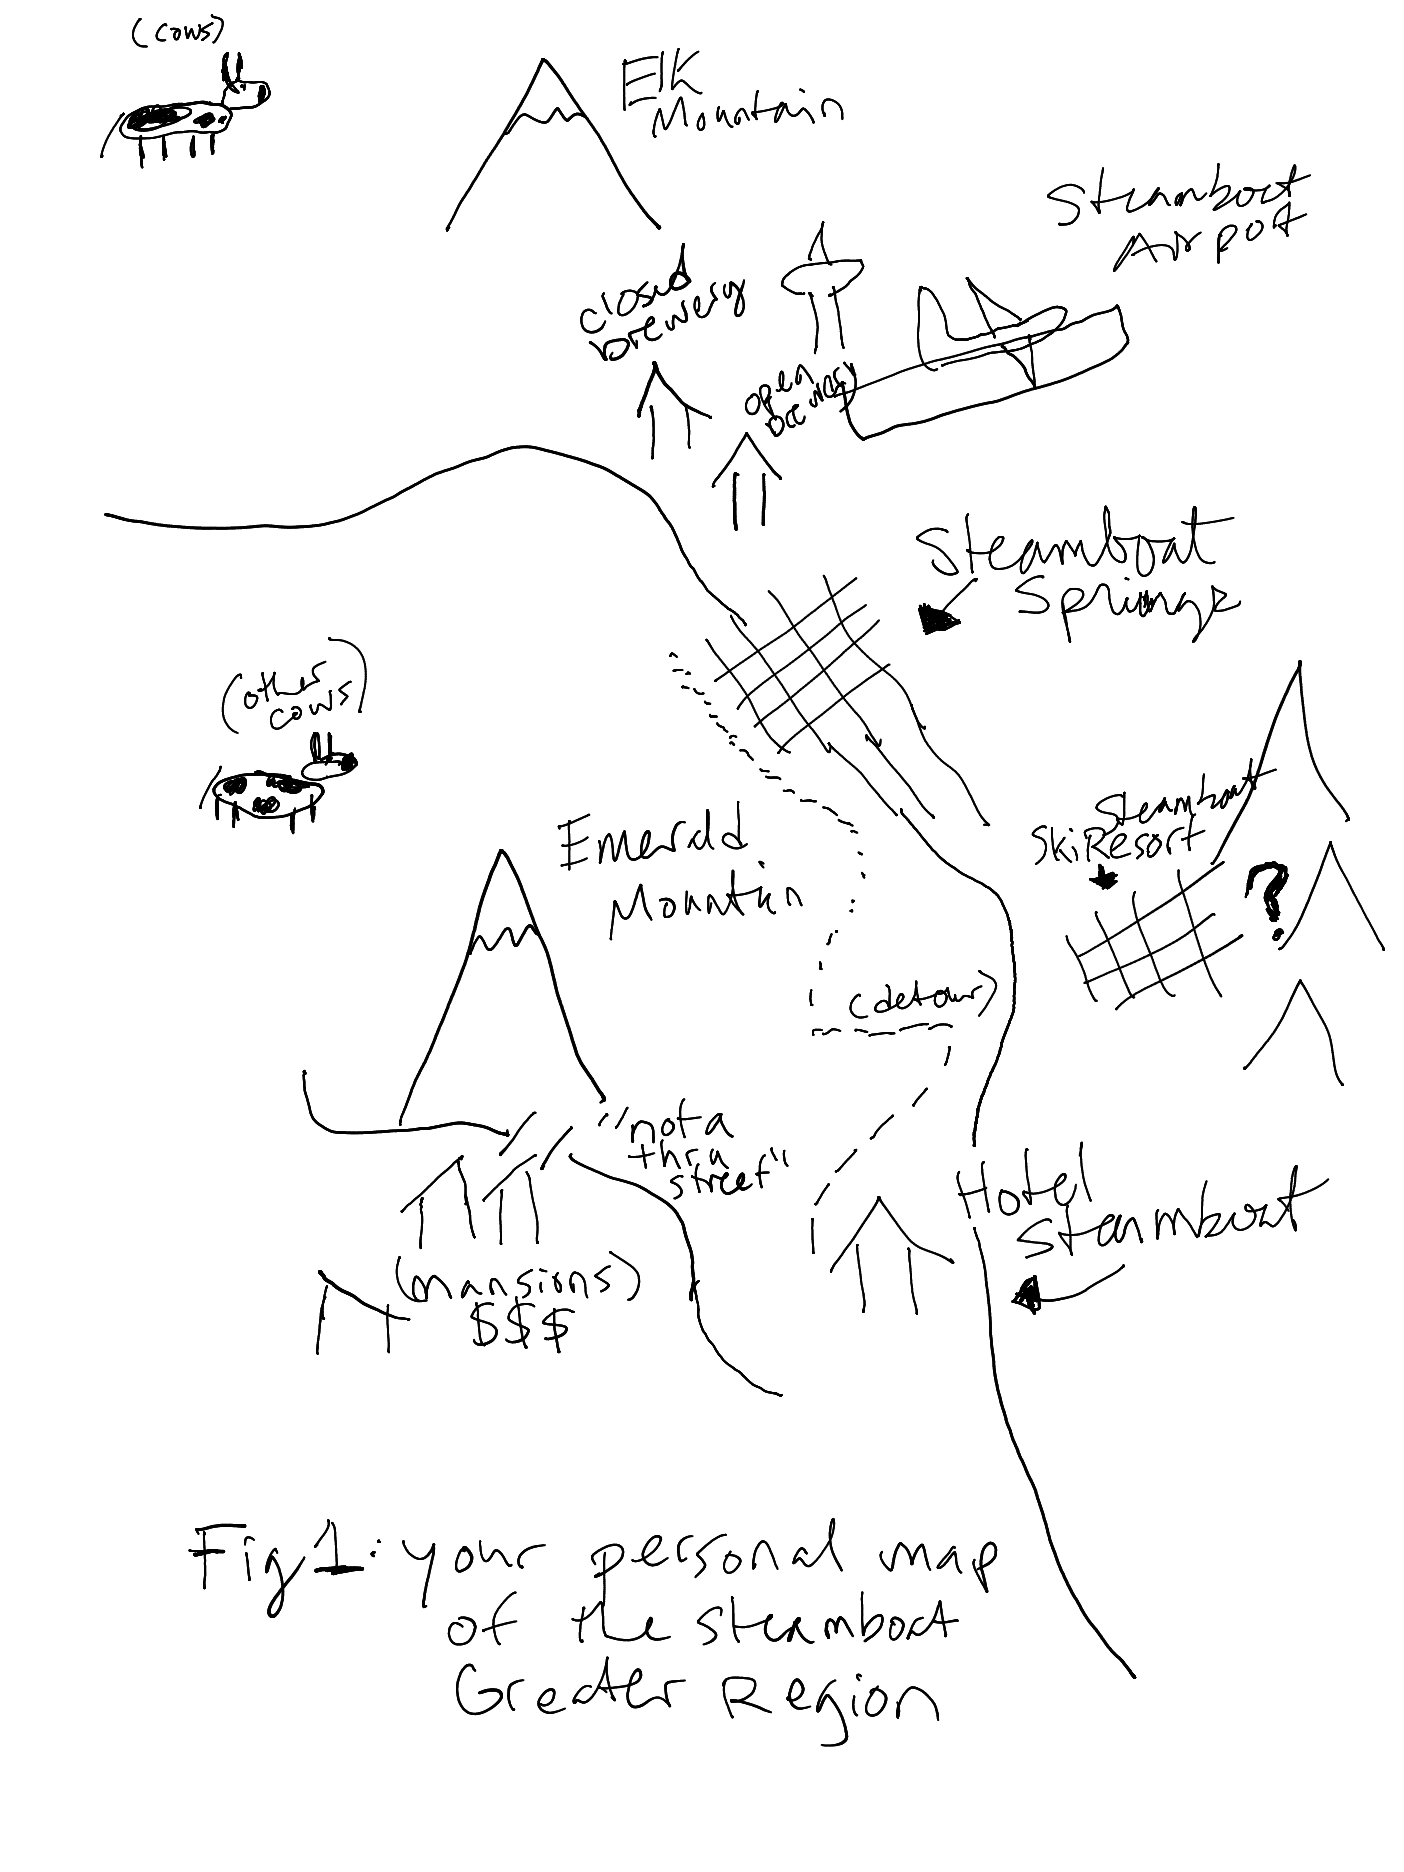 (cows)
Elk
Mountain
Steamboat
Airpot
closed
brewery
open
brewery
Steamboat
Springs
(other
cows)
Steamboat
Ski Resort
?
Emerald
Mountain
(detour)
"not a
thru
street"
Hotel
Steamboat
(mansions)
$$$
Fig 1: your personal map
of the steamboat
Greater Region